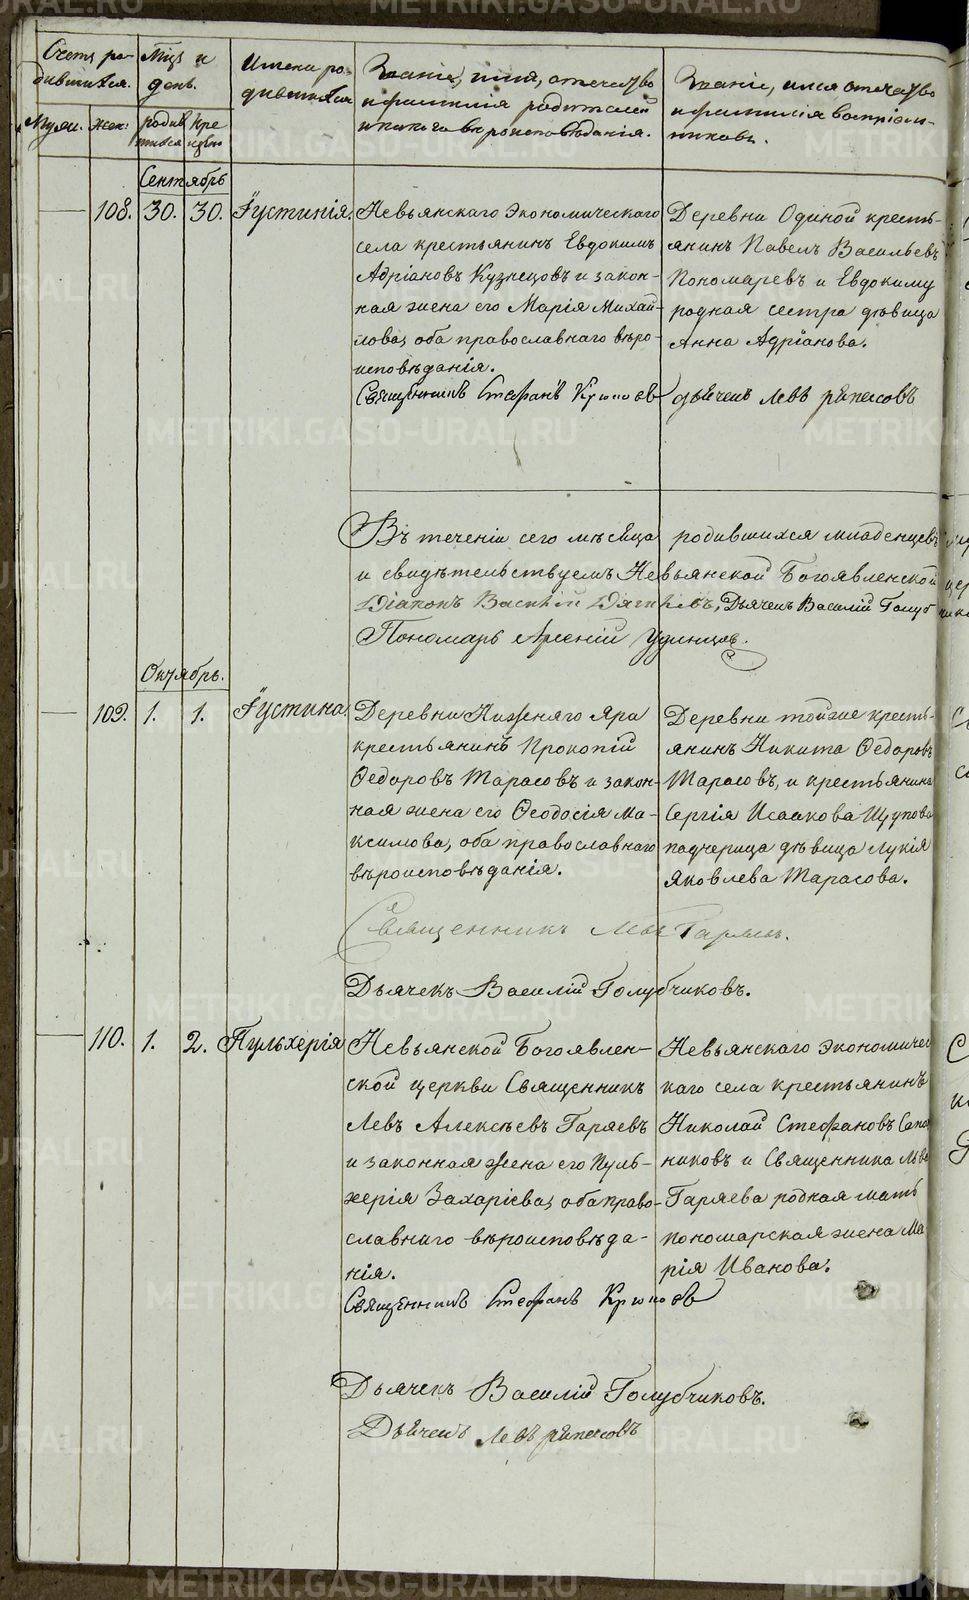 Счетъ ро-
дившихся.
Муж. Жен:
Мцъ и
день.
родив
шихся
Кре
щенія
Имена ро-
дившихся
Званіе, имя, отечество
и фамилія родителей
и какого вѣроисповѣданія.
Званіе, имя отечество
и фамилія воспріем-
никовъ.
Сентябрь
108. 30. 30. Іустинія.
Невьянскаго Экономическаго
села крестьянинъ Евдокимъ
Адріановъ Кузнецовъ и закон-
ная жена его Марія Михай-
лова, оба православнаго вѣро-
исповѣданія.
Священникъ Стефанъ
Деревни Одиной кресть-
янинъ Павелъ Васильевъ
Пономаревъ и Евдокиму
родная сестра дѣвица
Анна Адріанова.
дьячекъ Левъ
Въ теченіи сего мѣсяца родившихся младенцевъ
и свидѣтельствуемъ Невьянской Богоявленской
Діаконъ Василій Дягилевъ, Дьячекъ Василій Голуб
Пономарь Арсеній Удинцов.
Октябрь.
109. 1. 1. Іустина.
Деревни Нижняго Яра
крестьянинъ Прокопій
Ѳедоровъ Тарасовъ и закон-
ная жена его Ѳеодосія Ма-
ксимова, оба православнаго
вѣроисповѣданія.
Деревни той же кресть-
янинъ Никита Ѳедоровъ
Тарасовъ, и крестьянина
Сергія Исаакова Щупова
падчерица дѣвица Лукія
Яковлева Тарасова.
Священникъ Левъ Гаряевъ.
Дьячекъ Василій Голубчиковъ.
110. 1. 2. Пульхерія
Невьянской Богоявлен-
ской церкви Священникъ
Левъ Алексѣевъ Гаряевъ
и законная жена его Пуль-
херія Захаріева, оба право-
славнаго вѣроисповѣда-
нія.
Священникъ Стефанъ
Невьянскаго Экономичес
каго села крестьянинъ
Николай Стефановъ Сапож
никовъ и Священника Льва
Гаряева родная мать
пономарская жена Ма
рія Иванова.
Дьячекъ Василій Голубчиковъ.
Дьячекъ Левъ
METRIKI.GASO-URAL.RU